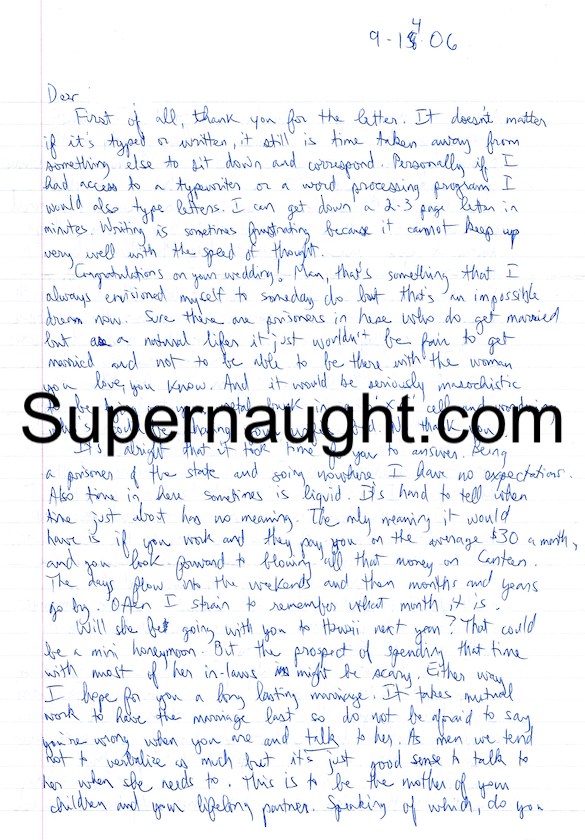 9-14 06
Dear
First of all, thank you for the letter. It doesn't matter
if it's typed or written, it still is time taken away from
something else to sit down and correspond. Personally if I
had access to a typewriter or a word processing program I
would also type letters. I can get down a 2-3 page letter in
minutes. Writing is sometimes frustrating because it cannot keep up
very well with the speed of thought.
Congratulations on your wedding! Man, that's something that I
always envisioned myself to someday do but that's an impossible
dream now. Sure there are prisoners in here who do get married
but as a natural lifer it just wouldn't be fair to get
married and not to be able to be there with the woman
you love, you know. And it would be seriously masochistic
Supernaught.com
It's alright that it took time for you to answer. Being
a prisoner of the state and going nowhere I have no expectations.
Also time in here sometimes is liquid. It's hard to tell when
time just about has no meaning. The only meaning it would
have is if you work and they pay you on the average $30 a month,
and you look forward to blowing all that money on Canteen.
The days flow into the weekends and then months and years
go by. Often I strain to remember what month it is.
Will she be going with you to Hawaii next year? That could
be a mini honeymoon. But the prospect of spending that time
with most of her in-laws might be scary. Either way
I hope for you a long lasting marriage. It takes mutual
work to have the marriage last so do not be afraid to say
you're wrong when you are and talk to her. As men we tend
not to verbalize as much but it's just good sense to talk to
her when she needs to. This is to be the mother of your
children and your lifelong partner. Speaking of which, do you